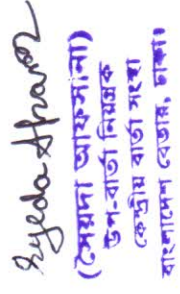 Syeda Afsana
(সৈয়দা আফসানা)
উপ-বার্তা নিয়ন্ত্রক
কেন্দ্রীয় বার্তা সংস্থা
বাংলাদেশ বেতার, ঢাকা।